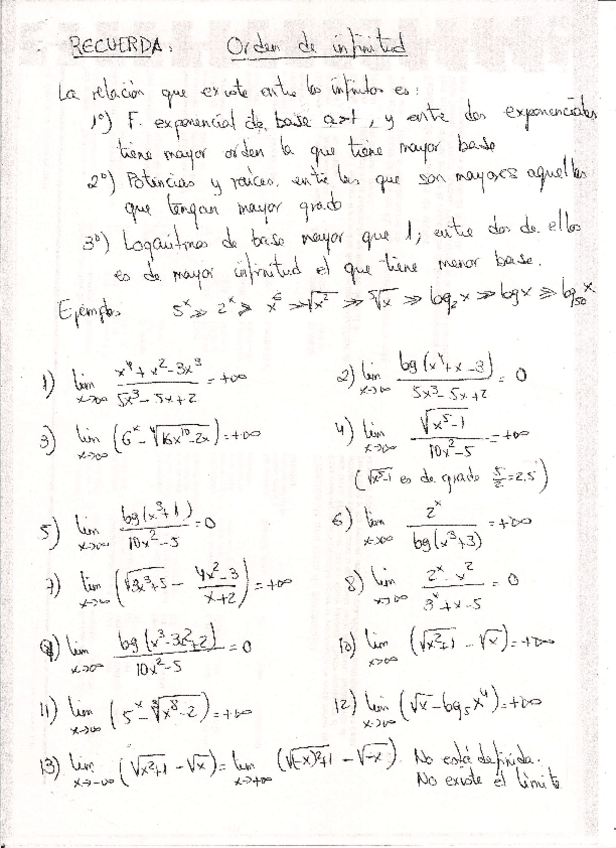 RECUERDA: Orden de infinitud
La relación que existe entre los infinitos es:
1º) F. exponencial de base a>1, y entre dos exponenciales
tiene mayor orden la que tiene mayor base
2º) Potencias y raíces, entre las que son mayores aquellas
que tengan mayor grado
3º) Logaritmos de base mayor que 1; entre dos de ellos
es de mayor infinitud el que tiene menor base.
Ejemplo: 5^x ≫ 2^x ≫ x^6 ≫ √x² ≫ ⁵√x ≫ log₂x ≫ log x ≫ log₅₀x
1) lim x→∞ (x⁴+x²-3x³)/(5x³-5x+2) = +∞ 2) lim x→∞ log(x⁴+x-3)/(5x³-5x+2) = 0
3) lim x→∞ (6^x - ⁴√(16x¹⁰-2x)) = +∞ 4) lim x→∞ √(x⁵-1)/(10x²-5) = +∞
(√(x⁵-1) es de grado 5/2=2,5)
5) lim x→∞ log(x³+1)/(10x²-5) = 0 6) lim x→∞ 2^x/log(x³+3) = +∞
7) lim x→∞ (√(3x³+5) - (4x²-3)/(x+2)) = +∞ 8) lim x→∞ (2^x - x²)/(3^x+x-5) = 0
9) lim x→∞ log(x³-3x²+2)/(10x²-5) = 0 10) lim x→∞ (√(x²+1) - √x) = +∞
11) lim x→∞ (5^x - ³√(x⁸-2)) = +∞ 12) lim x→∞ (√x - log₅x⁴) = +∞
13) lim x→-∞ (√(x²+1) - √x) = lim x→+∞ (√((-x)²+1) - √-x). No está definida.
No existe el límite